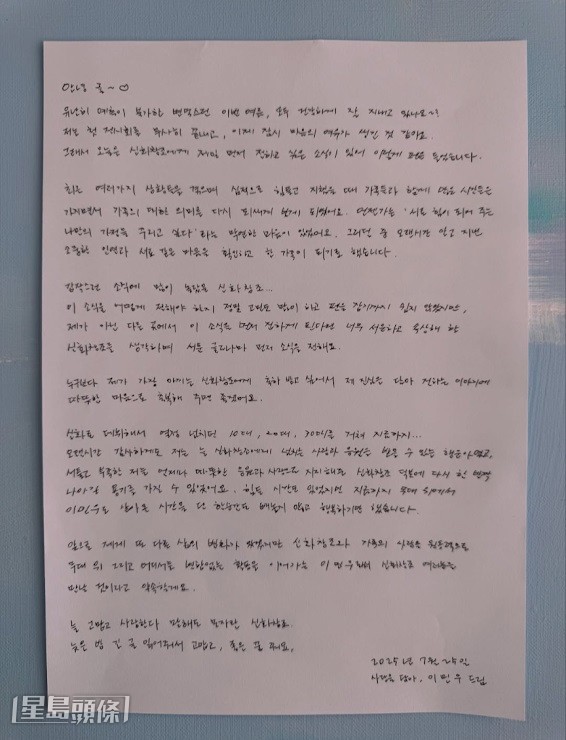 안녕 줄~♡
유난히 예측이 불가한 변덕스런 이번 여름, 모두 건강하게 잘 지내고 있나요?
저는 첫 전시회를 무사히 끝내고, 이제 잠시 마음의 여유가 생긴 것 같아요.
그래서 오늘은 신화창조에게 제일 먼저 전하고 싶은 소식이 있어 이렇게 펜을 들었습니다.
최근 여러가지 상황들을 겪으며 심적으로 힘들고 지쳤을 때 가족들과 함께 많은 시간을
가지면서 가족의 대한 의미를 다시 되새게 보게 되었어요. 언젠가는 '서로 힘이 되어 주는
나만의 가정을 꾸리고 싶다'라는 막연한 마음이 있었어요. 그러던 중 오랜시간 알고 지낸
소중한 인연과 서로 같은 마음을 확인하고 한 가족이 되기로 했습니다.
갑작스런 소식에 많이 놀랐을 신화창조...
이 소식을 어떻게 전해야 하지 정말 고민도 많이 하고 펜을 잡기까지 쉽지 않았지만,
제가 아닌 다른 곳에서 이 소식을 먼저 접하게 된다면 너무 서운하고 속상해 할
신화창조를 생각하며 서툰 글로나마 먼저 소식을 전해요.
누구보다 제가 가장 아끼는 신화창조에게 축하 받고 싶어서 제 진심을 담아 전하는 이야기에
따뜻한 마음으로 축복해 주면 좋겠어요.
신화로 데뷔해서 열정 넘치던 10대, 20대, 30대를 거쳐 지금까지...
오랜시간 감사하게도 저는 늘 신화창조에게 넘치는 사랑과 응원을 받을 수 있는 행운아였고,
서툴고 부족한 저를 언제나 따뜻한 응원과 사랑으로 지지해준 신화창조 덕분에 다시 한 발짝
나아갈 용기를 가질 수 있었어요. 힘든 시간도 있었지만 지금까지 무대 위에서
이민우로 살아온 시간을 단 한순간도 빼놓지 않고 행복하기만 했습니다.
앞으로 제게 또 다른 삶의 변화가 있겠지만 신화창조와 가족의 사랑을 원동력으로
무대 위 그리고 어디서든 변함없는 활동을 이어가는 이민우 신화창조 여러분을
만날 것이라고 약속할게요.
늘 고맙고 사랑한다 말해도 모자란 신화창조.
늦은 밤 긴 글 읽어줘서 고맙고, 좋은 꿈 꿔요.
2025년 7월 25일
사랑을 담아, 이민우 드림
星島頭條